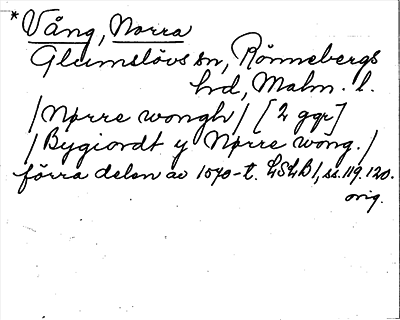 *Vång, Norra
Glumslövs sn, Rönnebergs
hd, Malm. l.
/Nørre wongh/ [2 ggr]
/Bygiordt y Nørre wong./
förra delen av 1570-t. LSLB1, ss. 119. 120.
orig.